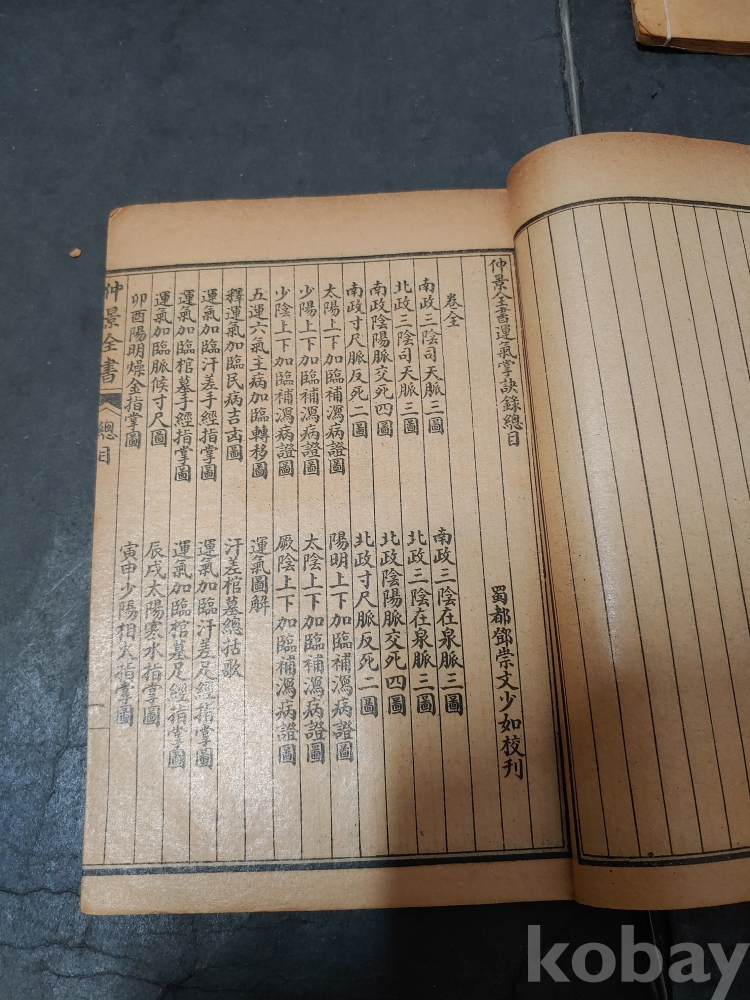 仲景全書運氣掌訣錄總目
蜀都鄧崇文少如校刊
卷全
南政三陰司天脈三圖
南政三陰在泉脈三圖
北政三陰司天脈三圖
北政三陰在泉脈三圖
南政陰陽脈交死四圖
北政陰陽脈交死四圖
南政寸尺脈反死二圖
北政寸尺脈反死二圖
太陽上下加臨補瀉病證圖
陽明上下加臨補瀉病證圖
少陽上下加臨補瀉病證圖
太陰上下加臨補瀉病證圖
少陰上下加臨補瀉病證圖
厥陰上下加臨補瀉病證圖
五運六氣主病加臨轉移圖
運氣圖解
釋運氣加臨民病吉凶圖
汗差棺墓總括歌
運氣加臨汗差手經指掌圖
運氣加臨汗差足經指掌圖
運氣加臨棺墓手經指掌圖
運氣加臨棺墓足經指掌圖
運氣加臨脈候寸尺圖
辰戌太陽寒水指掌圖
卯酉陽明燥金指掌圖
寅申少陽相火指掌圖
仲景全書
總目
一
kobay